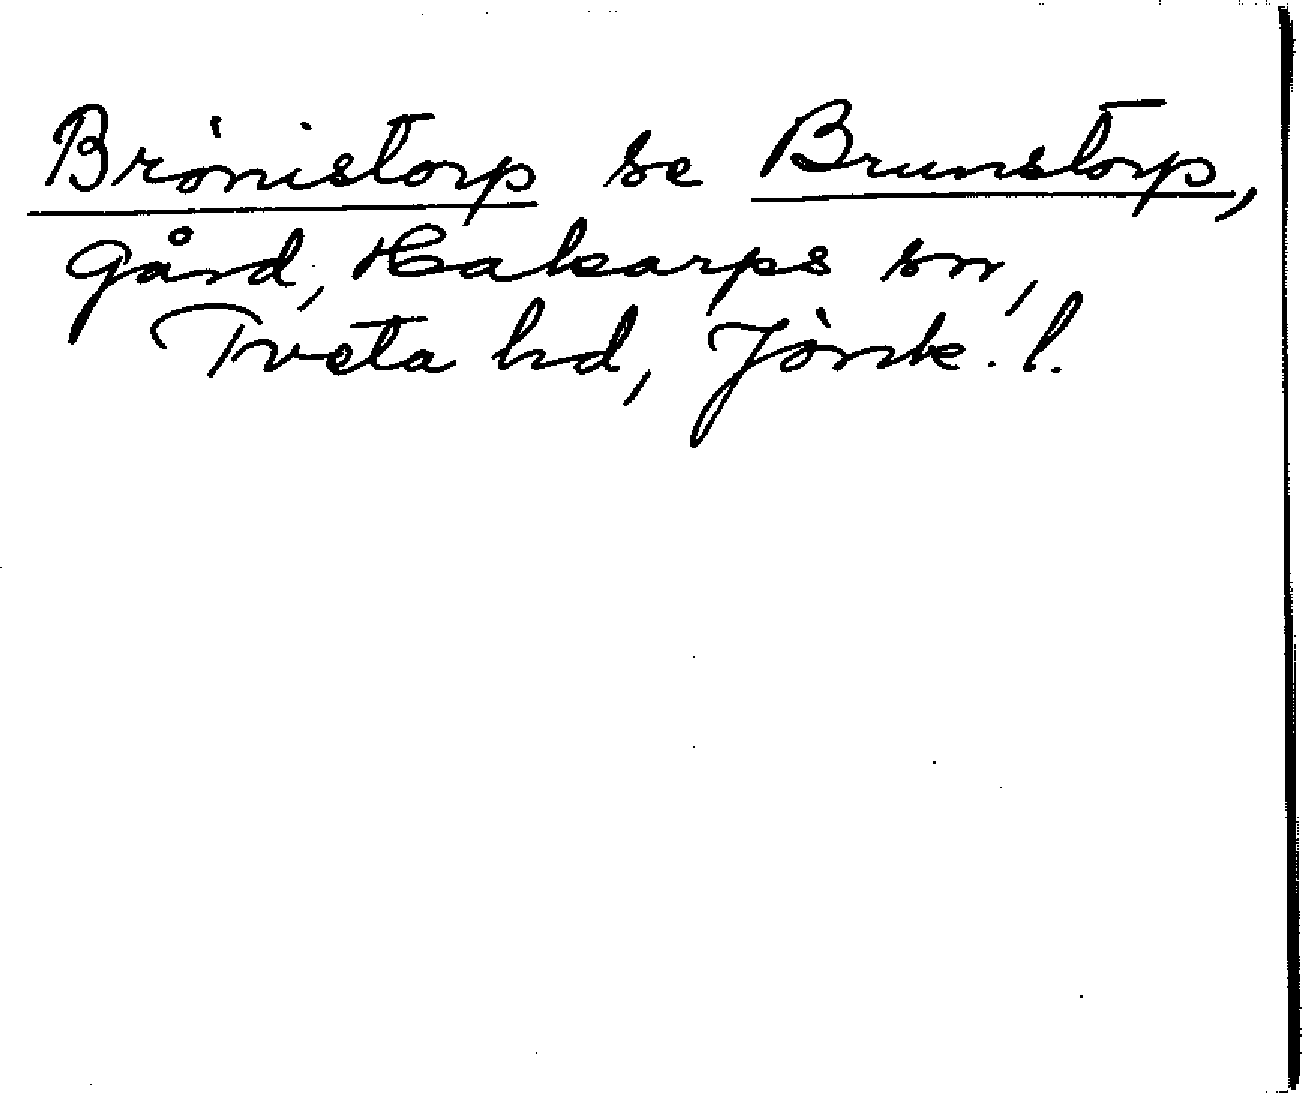 Brönistorp se Brunstorp,
gård, Hakarps sn,
Tveta hd, Jönk. l.